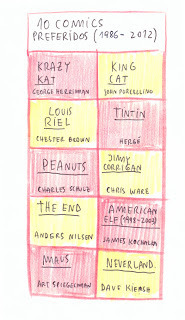 10 COMICS
PREFERIDOS (1986-2012)
KRAZY
KAT
GEORGE HERRIMAN
KING
CAT
JOHN PORCELLINO
LOUIS
RIEL
CHESTER BROWN
TINTIN
HERGÉ
PEANUTS
CHARLES SCHULZ
JIMMY
CORRIGAN
CHRIS WARE
THE END
ANDERS NILSEN
AMERICAN
ELF (1998-2007)
JAMES KOCHALKA
MAUS
ART SPIEGELMAN
NEVERLAND
DAVE KIERSH